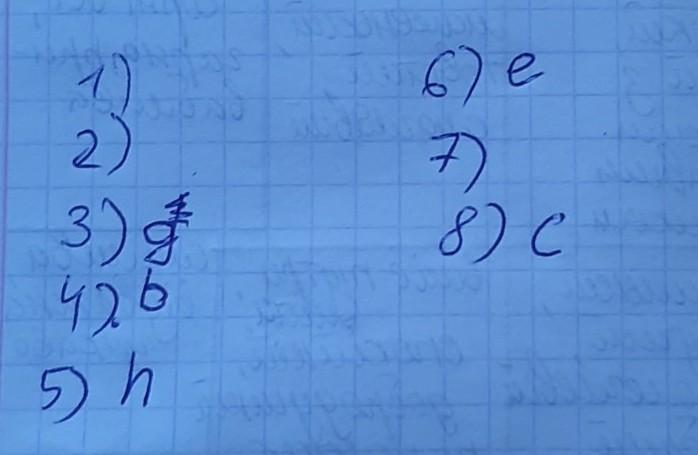 1)
2)
3) g
4) b
5) h
6) e
7)
8) c